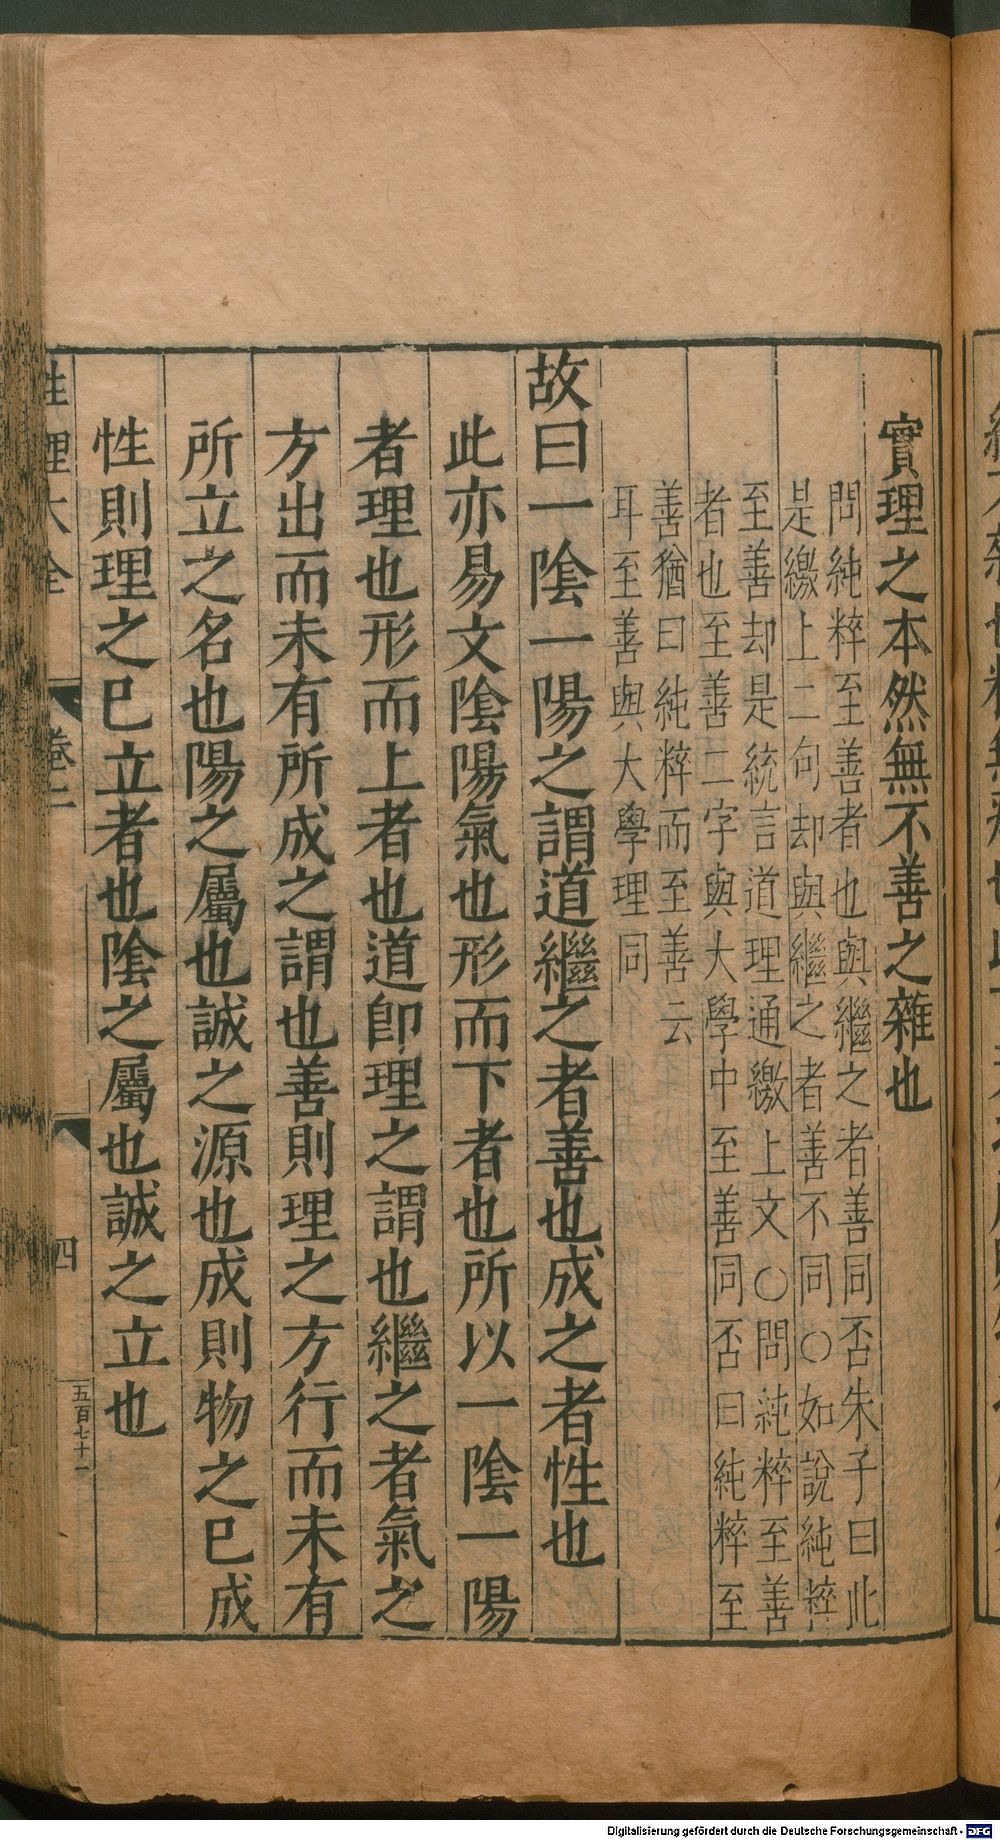 實理之本然無不善之雜也
問純粹至善者也與繼之者善同否朱子曰此
是繳上二句却與繼之者善不同○如說純粹
至善却是統言道理通繳上文○問純粹至善
者也至善二字與大學中至善同否曰純粹至
善猶曰純粹而至善云
耳至善與大學理同
故曰一陰一陽之謂道繼之者善也成之者性也
此亦易文陰陽氣也形而下者也所以一陰一陽
者理也形而上者也道即理之謂也繼之者氣之
方出而未有所成之謂也善則理之方行而未有
所立之名也陽之屬也誠之源也成則物之已成
性則理之已立者也陰之屬也誠之立也
性理大全
卷二
四
五百七十一
Digitalisierung gefördert durch die Deutsche Forschungsgemeinschaft - DFG